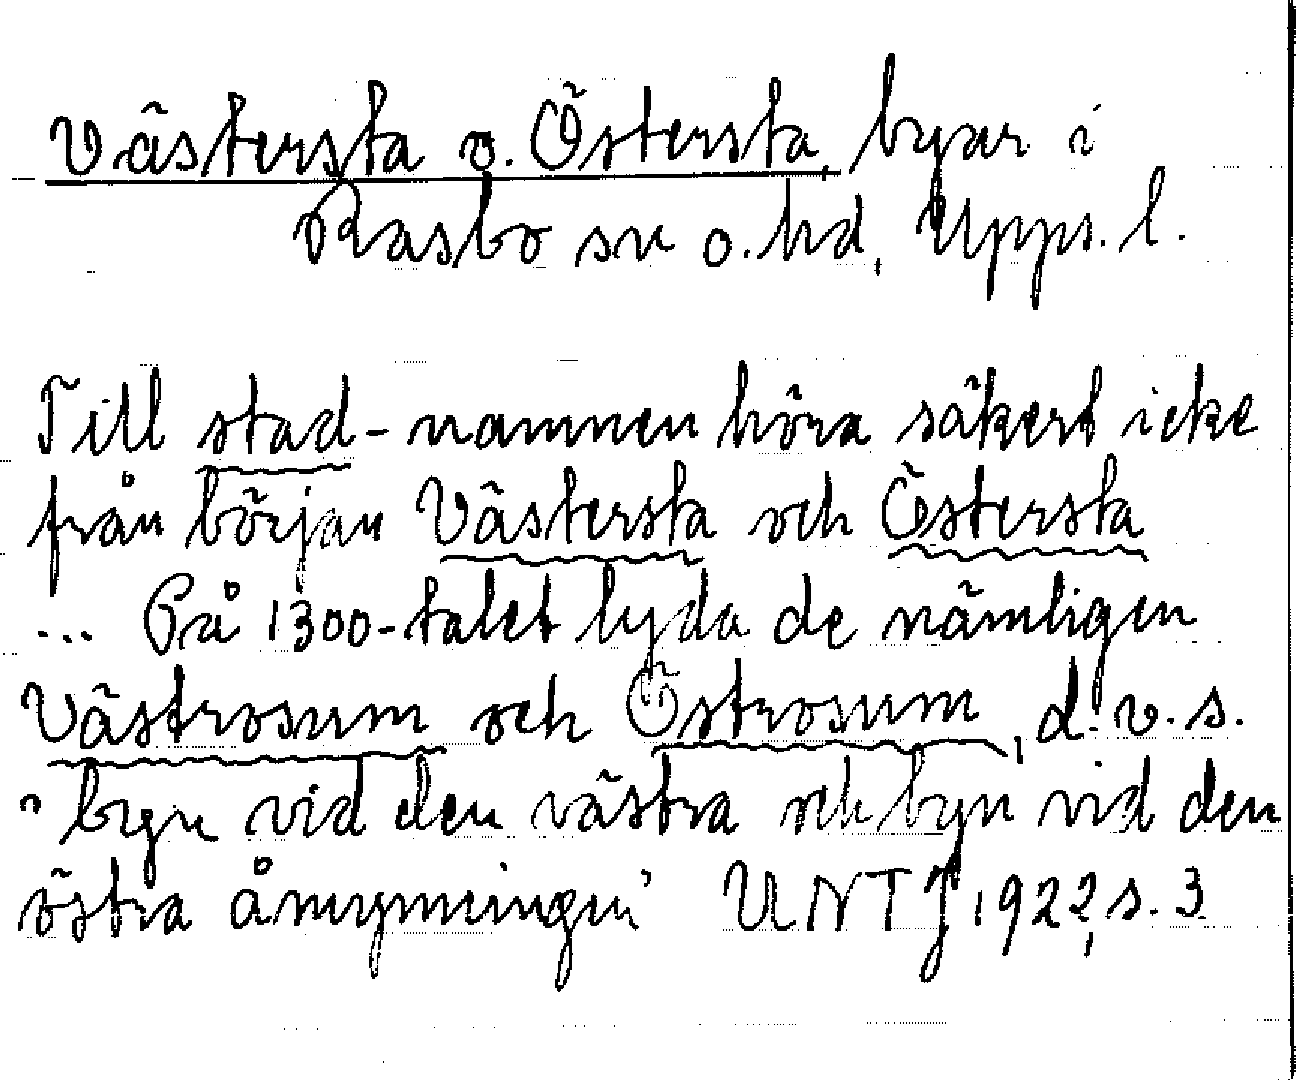 Västersta o. Östersta, byar i
Rasbo sn o. hd, Upps. l.
Till stad-namnen höra säkert icke
från början Västersta och Östersta
... På 1300-talet lyda de nämligen
Västrosum och Östrosum, d.v.s.
"byn vid den västra och byn vid den
östra åmynningen" UNTJ 1922, s. 3